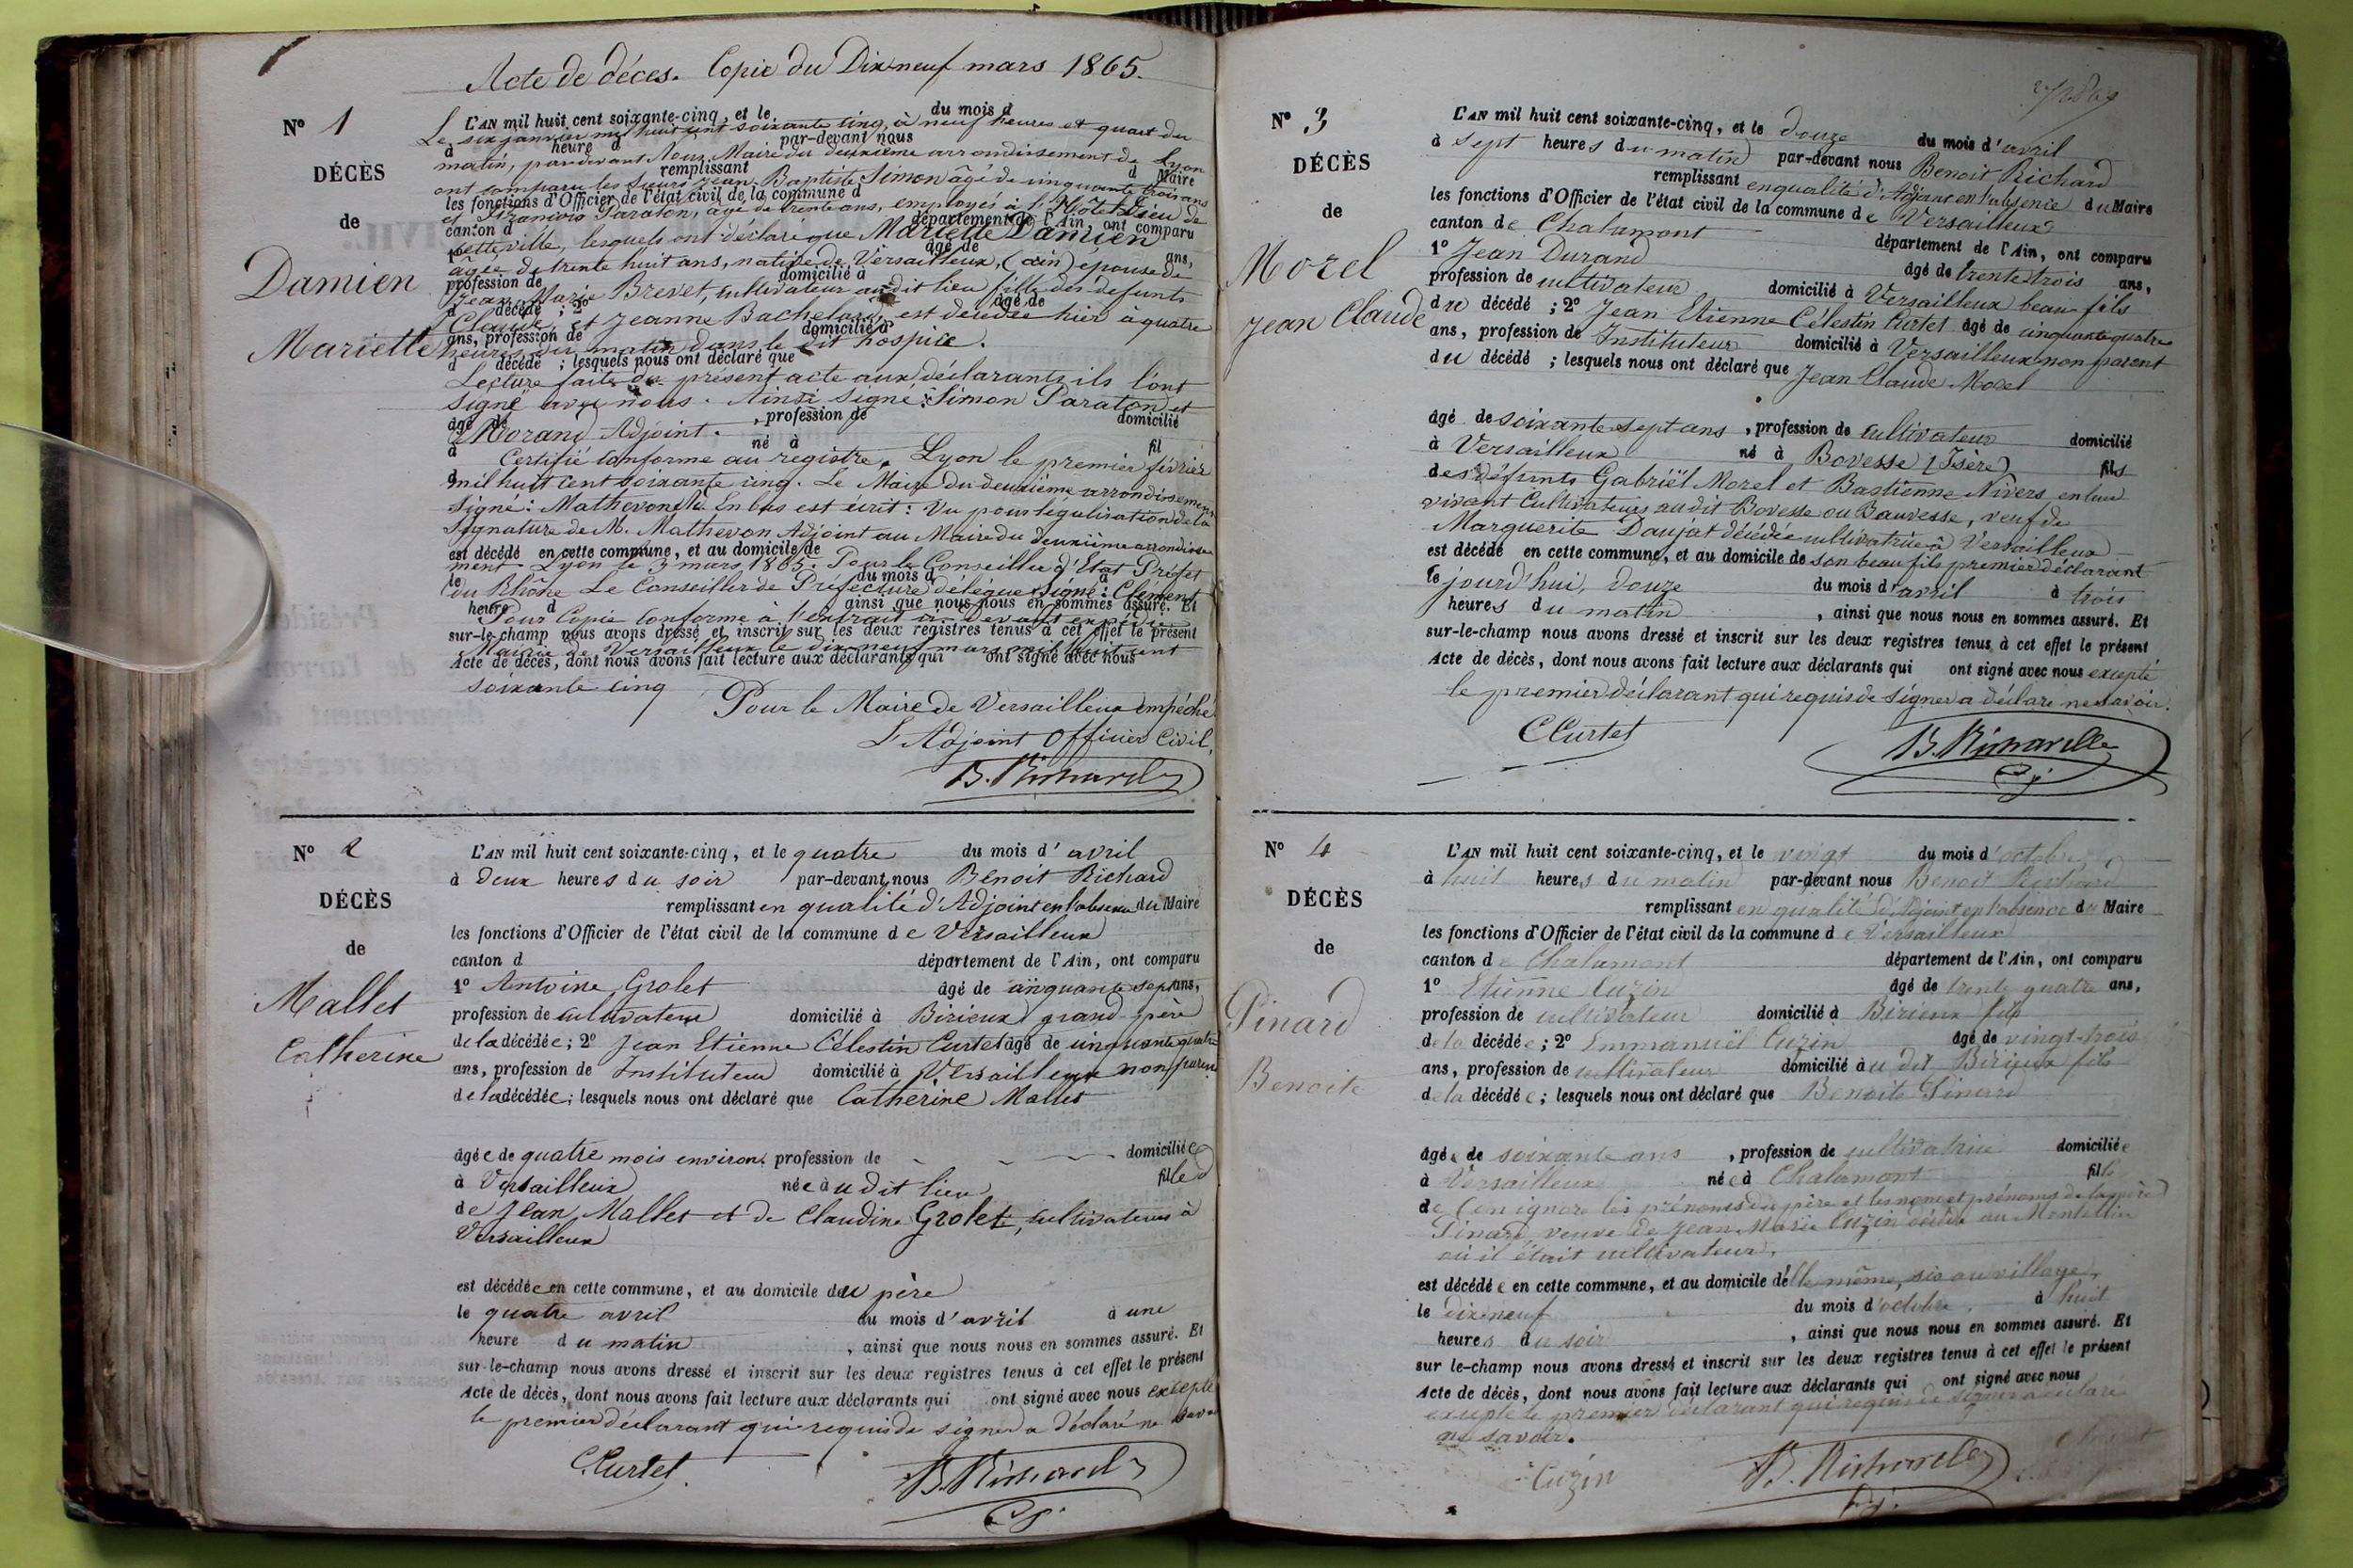 Acte de décès. Copie du Dix neuf mars 1865.
N° 1
DÉCÈS
de
Damien
Mariette
L'AN mil huit cent soixante-cinq, et le du mois d
Le six janvier mil huit cent soixante cinq, à neuf heures et quart du
à heure d par-devant nous
matin, pardevant Nous Maire du deuxième arrondissement de Lyon
remplissant d Maire
ont comparu les Sieurs Jean-Baptiste Simon âgé de cinquante trois ans
les fonctions d'Officier de l'état civil de la commune d
et François Paraton, âgé de trente ans, employés à l'Hôtel Dieu de
canton d département de l'Ain, ont comparu
cette ville, lesquels ont déclaré que Mariette Damien
1° âgé de ans,
âgée de trente huit ans, native de Versailleux, (ain) épouse de
profession de domicilié à
Jean Marie Brevet, cultivateur audit lieu fille des défunts
d décédé ; 2° âgé de
Claude, et Jeanne Bachelard, est décédée hier à quatre
ans, profession de domicilié à
heures du matin dans le dit hospice.
d décédé ; lesquels nous ont déclaré que
Lecture faite du présent acte aux déclarants ils l'ont
signé avec nous. Ainsi signé : Simon Paraton et
âgé de , profession de domicilié
Morand Adjoint.
à né à fil
Certifié conforme au registre. Lyon le premier février
d
mil huit cent soixante cinq. Le Maire du deuxième arrondissement
Signé : Mathevon En bas est écrit : Vu pour légalisation de la
signature de M. Mathevon Adjoint au Maire du deuxième arrondisse
est décédé en cette commune, et au domicile de
ment. Lyon le 3 mars 1865. Pour le Conseiller d'Etat Préfet
le du mois d à
du Rhône Le Conseiller de Préfecture délégué Signé : Clément
heure d ainsi que nous nous en sommes assuré. Et
Pour Copie conforme à l'extrait ci-devant expédié
sur-le-champ nous avons dressé et inscrit sur les deux registres tenus à cet effet le présent
Mairie de Versailleux le dix-neuf mars mil huit cent
Acte de décès, dont nous avons fait lecture aux déclarants qui ont signé avec nous
soixante cinq
Pour le Maire de Versailleux empéché
L'Adjoint Officier Civil,
B. Richard
N° 2
DÉCÈS
de
Mallet
Catherine
L'AN mil huit cent soixante-cinq, et le quatre du mois d'avril
à deux heures du soir par-devant nous Benoit Richard
remplissant en qualité d'Adjoint en l'absence du Maire
les fonctions d'Officier de l'état civil de la commune de Versailleux
canton d département de l'Ain, ont comparu
1° Antoine Grolet âgé de cinquante sept ans,
profession de cultivateur domicilié à Birieux grand-père
de la décédée ; 2° Jean Etienne Célestin Curtet âgé de cinquante quatre
ans, profession de Instituteur domicilié à Versailleux non parent
de la décédée ; lesquels nous ont déclaré que Catherine Mallet
âgée de quatre mois environ, profession de domiciliée
à Versailleux née audit lieu fille
de Jean Mallet et de Claudine Grolet, cultivateurs à
Versailleux
est décédée en cette commune, et au domicile du père
le quatre avril du mois d'avril à une
heure du matin , ainsi que nous nous en sommes assuré. Et
sur-le-champ nous avons dressé et inscrit sur les deux registres tenus à cet effet le présent
Acte de décès, dont nous avons fait lecture aux déclarants qui ont signé avec nous excepté
le premier déclarant qui requis de signer a déclaré ne savoir
C. Curtet
B. Richard
N° 3
DÉCÈS
de
Morel
Jean Claude
L'AN mil huit cent soixante-cinq, et le douze du mois d'avril
à sept heures du matin par-devant nous Benoit Richard
remplissant en qualité d'Adjoint en l'absence du Maire
les fonctions d'Officier de l'état civil de la commune de Versailleux
canton de Chalamont département de l'Ain, ont comparu
1° Jean Durand âgé de trente-trois ans,
profession de cultivateur domicilié à Versailleux beau fils
du décédé ; 2° Jean Etienne Célestin Curtet âgé de cinquante quatre
ans, profession de Instituteur domicilié à Versailleux non parent
du décédé ; lesquels nous ont déclaré que Jean Claude Morel
âgé de soixante sept ans , profession de cultivateur domicilié
à Versailleux né à Bovesse (Isère) fils
des défunts Gabriël Morel et Bastienne Nivers en leur
vivant Cultivateurs audit Bovesse ou Bauvesse, veuf de
Marguerite Daujat décédée cultivatrice à Versailleux
est décédé en cette commune, et au domicile de son beau fils premier déclarant
le jourd'hui, douze du mois d'avril à trois
heures du matin , ainsi que nous nous en sommes assuré. Et
sur-le-champ nous avons dressé et inscrit sur les deux registres tenus à cet effet le présent
Acte de décès, dont nous avons fait lecture aux déclarants qui ont signé avec nous excepté
le premier déclarant qui requis de signer a déclaré ne savoir.
C Curtet
B. Richard
N° 4
DÉCÈS
de
Pinard
Benoite
L'AN mil huit cent soixante-cinq, et le vingt du mois d'octobre
à huit heures du matin par-devant nous Benoit Richard
remplissant en qualité d'Adjoint en l'absence du Maire
les fonctions d'Officier de l'état civil de la commune de Versailleux
canton de Chalamont département de l'Ain, ont comparu
1° Etienne Cuzin âgé de trente quatre ans,
profession de cultivateur domicilié à Birieux fils
de la décédée ; 2° Emmanuël Cuzin âgé de vingt-trois
ans, profession de cultivateur domicilié au dit Birieux fils
de la décédée ; lesquels nous ont déclaré que Benoite Pinard
âgée de soixante ans , profession de cultivatrice domiciliée
à Versailleux née à Chalamont fille
de (on ignore les prénoms du père et les nom et prénoms de la mère)
Pinard, veuve de Jean Marie Cuzin décédé au Montellier
où il était cultivateur,
est décédée en cette commune, et au domicile d'elle même, sis au village,
le dix-neuf du mois d'octobre à huit
heures du soir , ainsi que nous nous en sommes assuré. Et
sur le-champ nous avons dressé et inscrit sur les deux registres tenus à cet effet le présent
Acte de décès, dont nous avons fait lecture aux déclarants qui ont signé avec nous
excepté le premier déclarant qui requis de signer a déclaré
ne savoir.
Cuzin
B. Richard